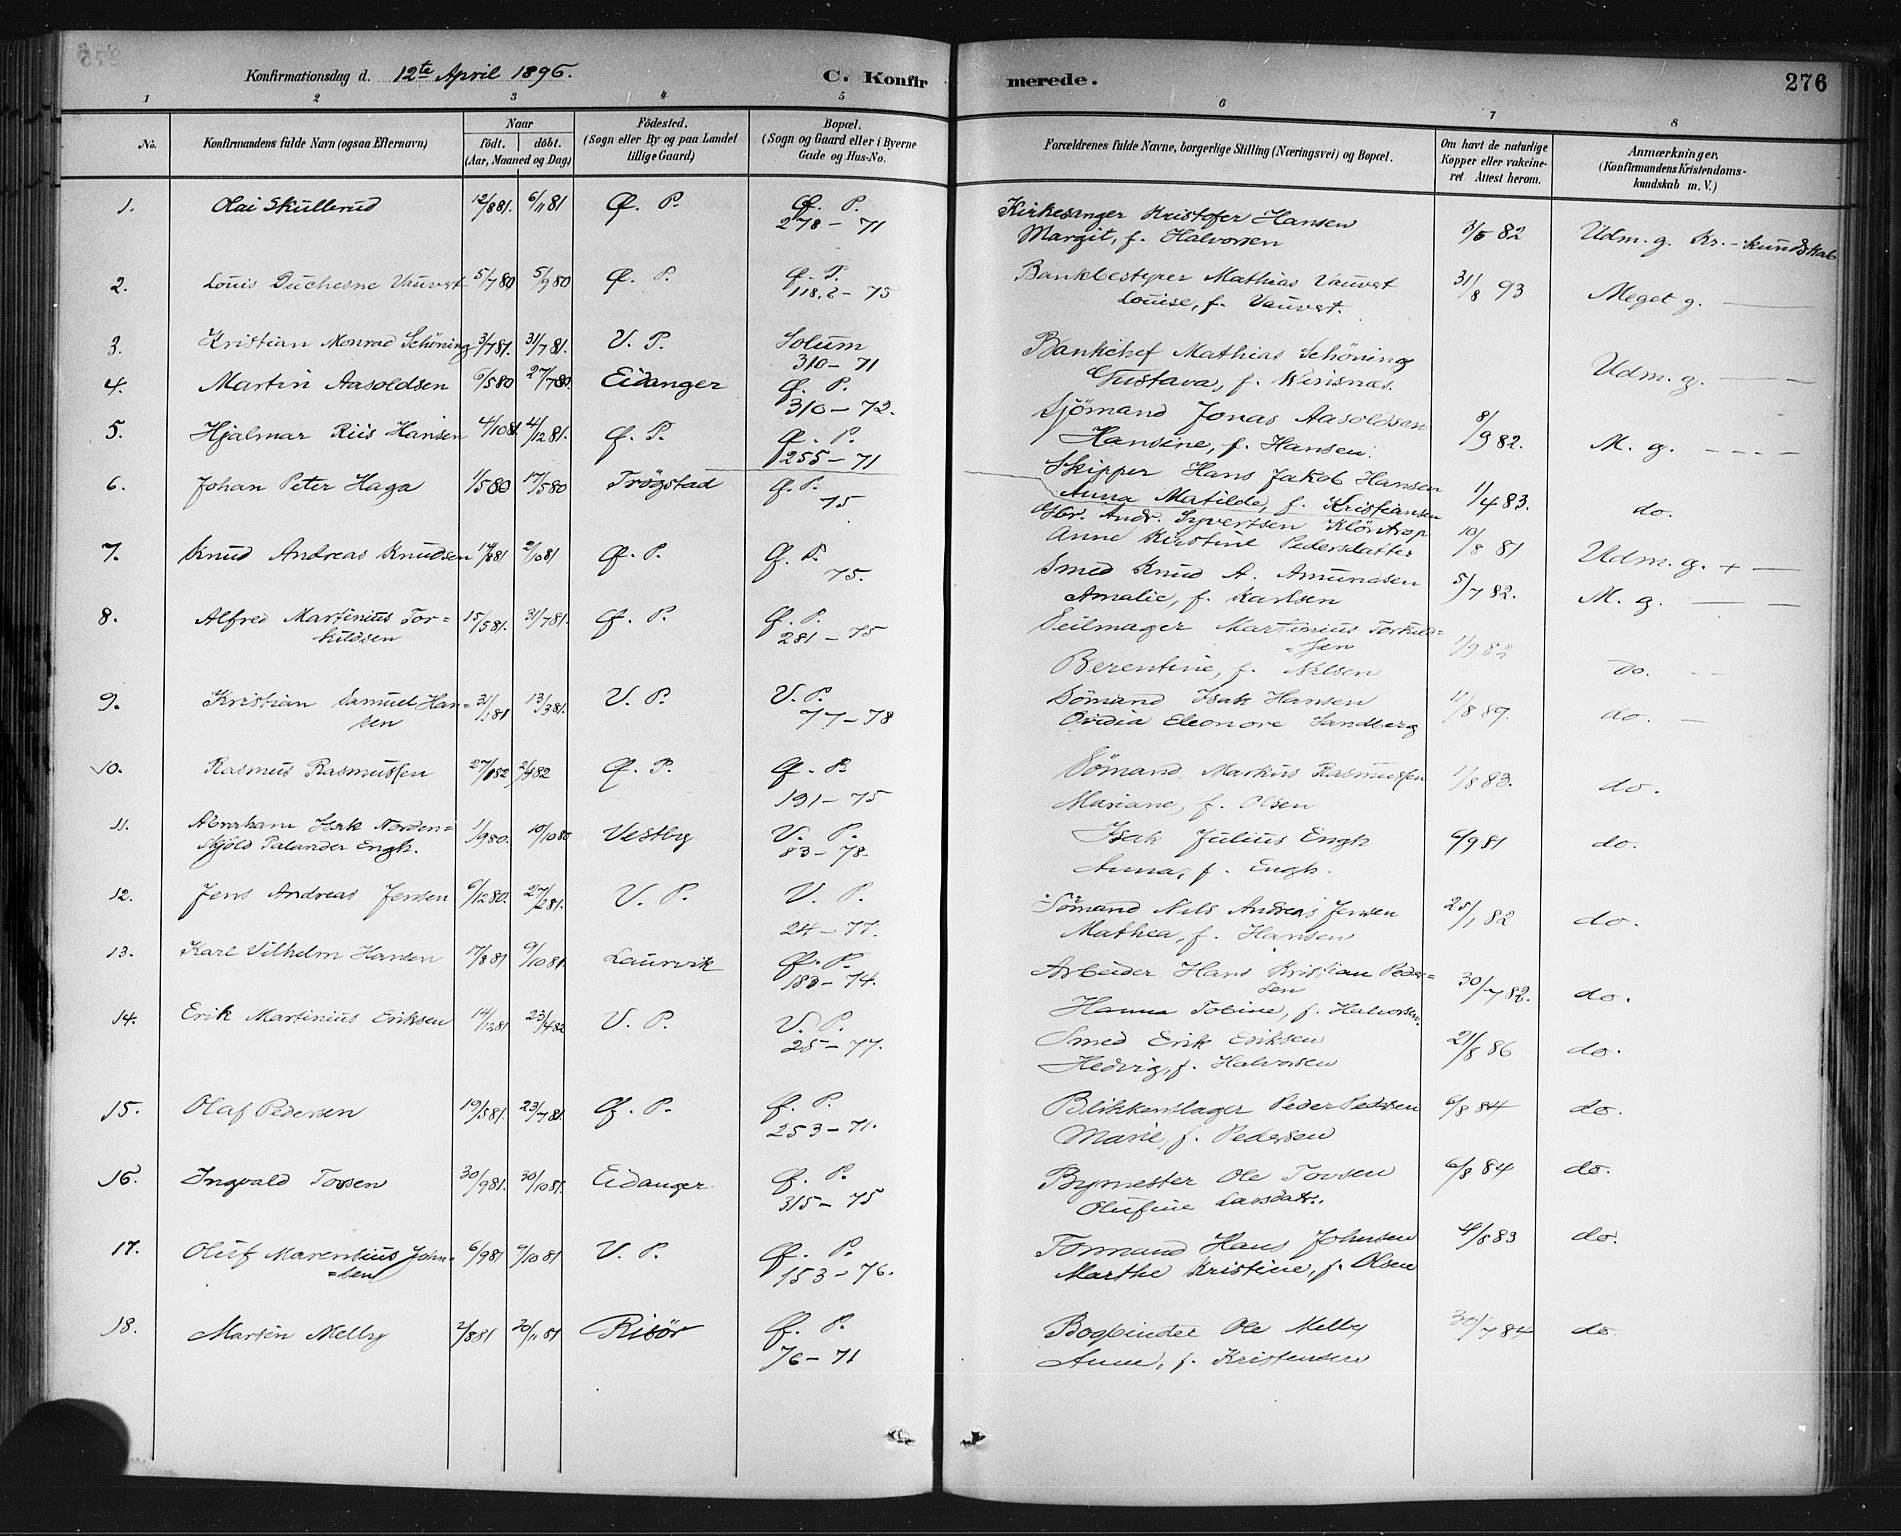 Konfirmationsdag d. 12te April 1896. C. Konfirmerede. 276
1 2 3 4 5 6 7 8
No.
Konfirmandens fulde Navn (ogsaa Efternavn)
Naar
født. døbt.
(Aar, Maaned og Dag)
Fødested.
(Sogn eller By og paa Landet
tillige Gaard)
Bopæl.
(Sogn og Gaard eller i Byerne
Gade og Hus-No.
Forældrenes fulde Navne, borgerlige Stilling (Næringsvei) og Bopæl.
Om havt de naturlige
Kopper eller vakcine-
ret. Attest herom.
Anmærkninger.
(Konfirmandens Kristendoms-
kundskab m. V.)
1. Olai Skullerud 12/8 81. 6/11 81 Ø. P. Ø. P.
278 – 71
Kirkesanger Kristofer Hansen
Margit, f. Halvorsen 3/5 82 Udm. g. Kr.-kundskab
2. Louis Duchesne Vauvert 5/7 80 5/9 80 Ø. P. Ø. P.
118.2 – 75
Bankbestyrer Mathias Vauvert
Louise, f. Vauvert. 31/8 93 Meget g. —
3. Kristian Monrad Schöning 3/7 81. 31/7 81. V. P. Solum
310 – 71
Bankchef Mathias Schöning
Gustava, f. Wirisnæs. Udm. g. — —
4. Martin Aasoldsen 6/5 80 27/7 80. Eidanger Ø. P.
310 – 72.
Sjömand Jonas Aasoldsen
Hansine, f. Hansen. 8/9 82. M. g. – – – –
5. Hjalmar Riis Hansen 4/10 81 4/12 81. Ø. P. Ø. P.
255 – 71
Skipper Hans Jakob Hansen
Anna Matilde, f. Kristiansen 1/4 83. do.
6. Johan Peter Haga 1/5 80 17/5 80 Trögstad Ø. P.
75
Gbr. Andr. Syvertsen Klöntrop
Anne Kirstine Pedersdatter 10/8 81 Udm. g. + —
7. Knud Andreas Knudsen 14/8 81 2/10 81 Ø. P. Ø. P.
75.
Smed Knud A. Amundsen
Amalie, f. Karlsen 5/7 82. M. g. — —
8. Alfred Martinius Tor=
kildsen 15/5 81. 31/7 81. Ø. P. Ø. P.
281 – 75
Seilmager Martinius Torkild=
=sen
Berentine, f. Nilsen 1/9 82 do. – –
9. Kristian Samuel Han=
sen 31/1 81 13/3 81. V. P. V. P.
77 – 78
Sömand Isak Hansen
Ovidia Eleonore Sandberg 11/8 89. do. –
10. Rasmus Rasmussen 27/1 82 2/4 82 Ø. P. Ø. P.
191 – 75
Sömand Markus Rasmussen
Mariane, f. Olsen 1/8 83. do.
11. Abraham Isak Norden=
skjöld Palander Engh. 1/9 80. 10/10 80 Vestby V. P.
83 – 78.
Isak Julius Engh
Anna, f. Engh. 6/9 81 do.
12. Jens Andreas Jensen 6/12 80. 27/2 81. V. P. V. P.
24 – 77.
Sömand Nils Andreas Jensen
Mathea, f. Hansen 25/1 82 do.
13. Karl Vilhelm Hansen 17/8 81 9/10 81. Laurvik Ø. P.
183 – 74.
Arbeider Hans Kristian Peder=
sen
Hanna Tobine, f. Halvorsen. 30/7 82. do.
14. Erik Martinius Eriksen 14/12 81 23/4 82 V. P. V. P.
25 – 77.
Smed Erik Eriksen
Hedvig, f. Halvorsen 21/8 86 do.
15. Olaf Pedersen 19/5 81. 23/7 81. Ø. P. Ø. P.
253 – 71.
Blikkenslager Peder Pedersen
Marie, f. Pedersen 6/8 84 do.
16. Ingvald Tovsen 30/9 81. 30/10 81. Eidanger Ø. P.
315 – 75
Bymester Ole Tovsen
Olufine Larsdatr. 6/8 84 do.
17. Oluf Marentius John=
=sen 6/9 81 9/10 81 V. P. Ø. P.
153 – 76.
Formand Hans Johnsen
Marthe Kristine, f. Olsen 4/8 83 do.
18. Martin Melby 2/8 81 20/11 81 Risör Ø. P.
76 – 71
Bogbinder Ole Melby
Anne, f. Kristensen 30/7 84 do